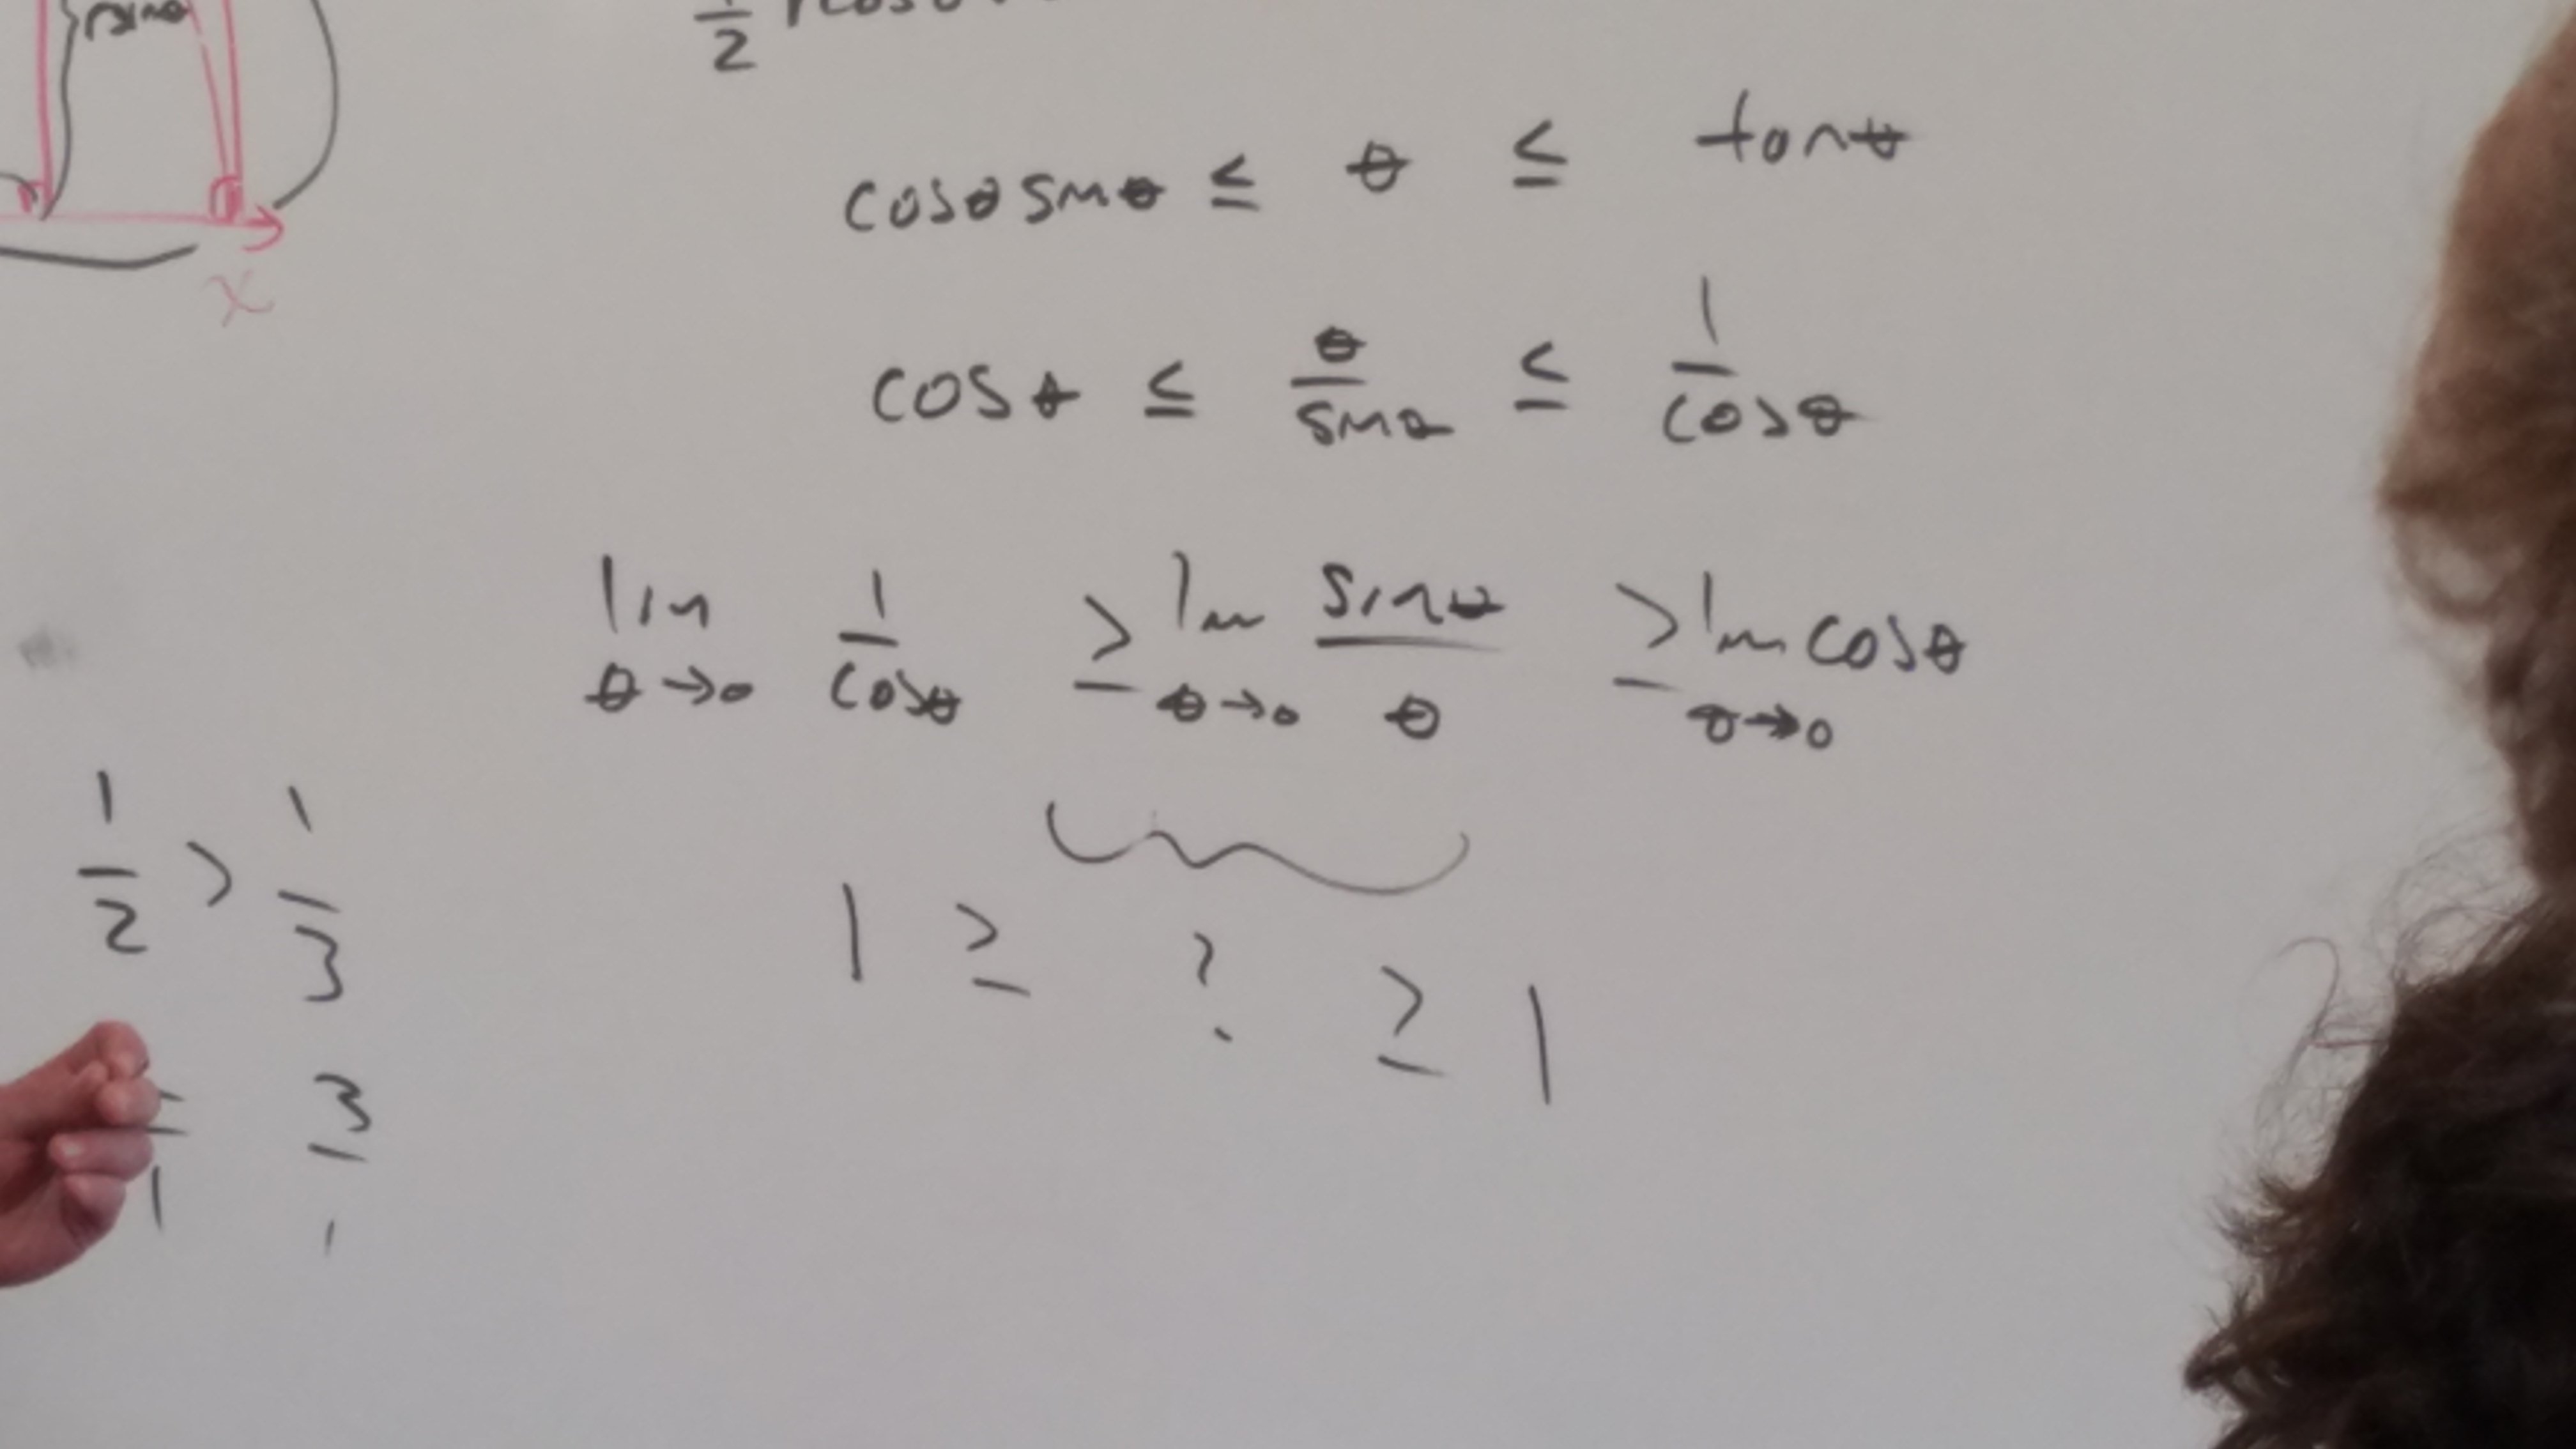 rsinθ
1/2 rcosθ
x
cosθ sinθ ≤ θ ≤ tanθ
cosθ ≤ θ/sinθ ≤ 1/cosθ
lim θ→0 1/cosθ ≥ lim θ→0 sinθ/θ ≥ lim θ→0 cosθ
1/2 > 1/3
1 ≥ ? ≥ 1
3/1